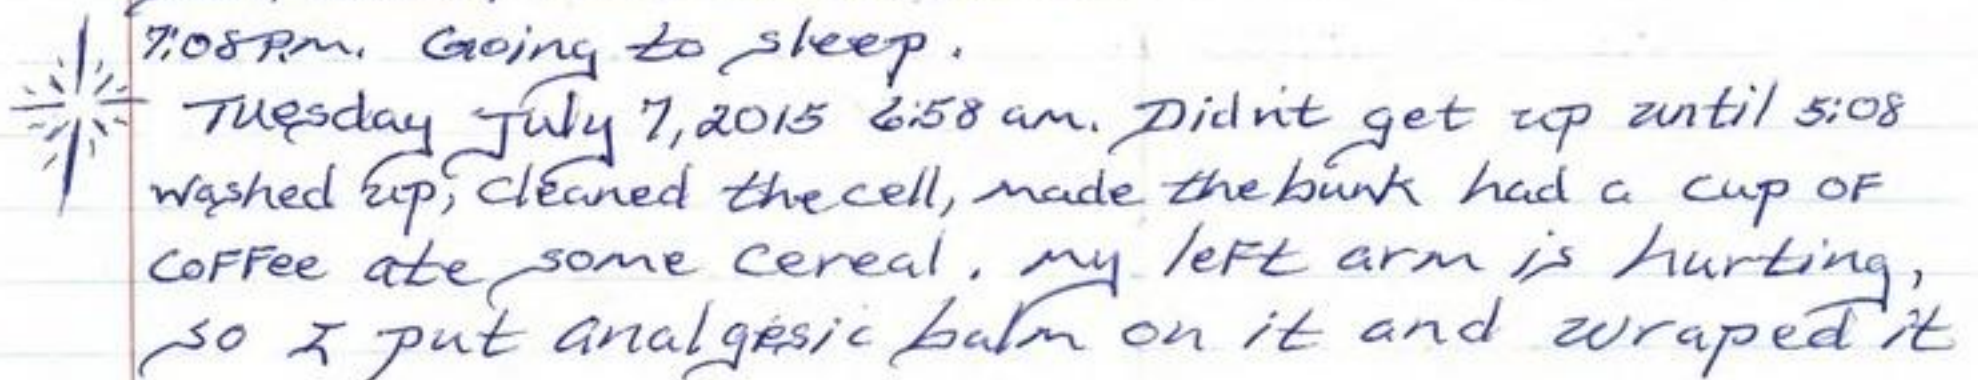 7:08 P.m. Going to sleep.
Tuesday July 7, 2015 6:58 am. Didn't get up until 5:08
washed up, cleaned the cell, made the bunk had a cup of
coffee ate some cereal. my left arm is hurting,
so I put analgesic balm on it and wraped it